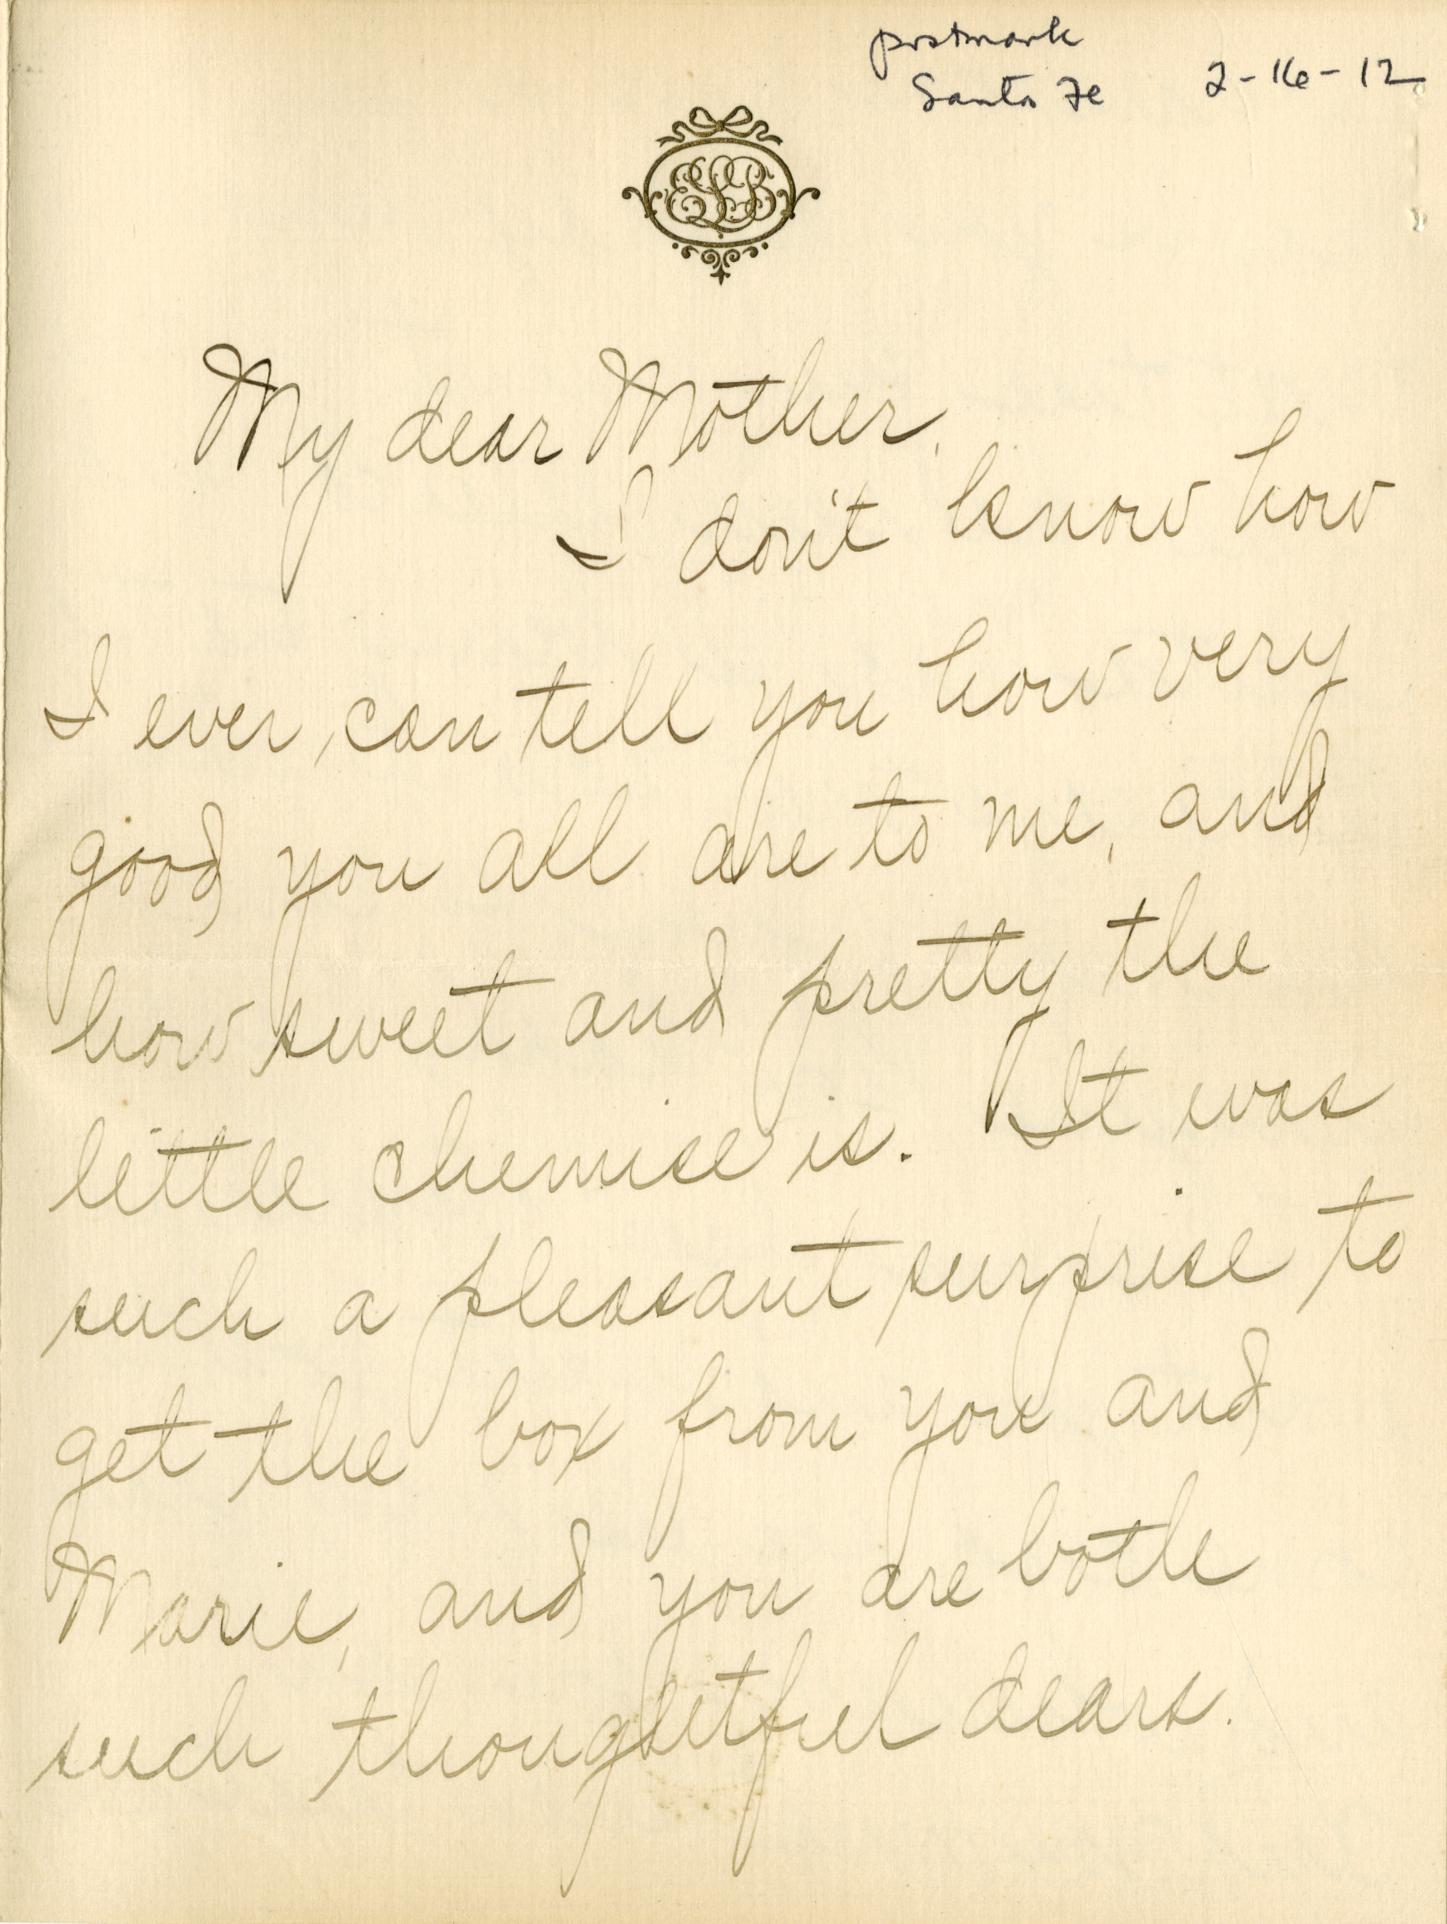 postmark
Santa Fe 2-16-12
ELB
My dear Mother,
I don't know how
I ever can tell you how very
good you all are to me, and
how sweet and pretty the
little chemise is. It was
such a pleasant surprise to
get the box from you and
Marie, and you are both
such thoughtful dears.